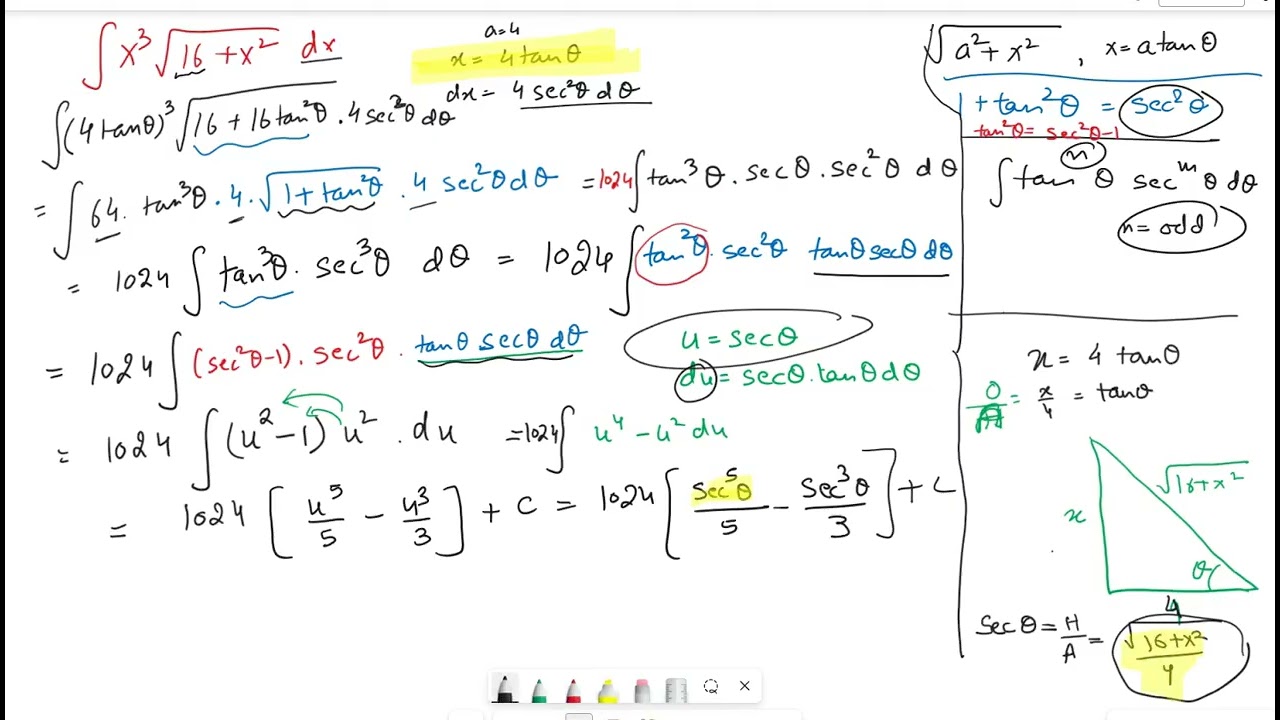 ∫ x³ √(16 + x²) dx
a=4
x = 4 tanθ
dx = 4 sec²θ dθ
∫ (4 tanθ)³ √(16 + 16 tan²θ) . 4 sec²θ dθ
= ∫ 64 . tan³θ . 4 . √(1 + tan²θ) . 4 sec²θ dθ = 1024 ∫ tan³θ . secθ . sec²θ dθ
= 1024 ∫ tan³θ . sec³θ dθ = 1024 ∫ tan²θ . sec²θ tanθ secθ dθ
= 1024 ∫ (sec²θ-1) . sec²θ . tanθ secθ dθ
u = secθ
du = secθ . tanθ dθ
= 1024 ∫ (u² - 1) u² . du = 1024 ∫ u⁴ - u² du
= 1024 [u⁵/5 - u³/3] + C = 1024 [sec⁵θ/5 - sec³θ/3] + C
√(a² + x²) , x = a tanθ
1 + tan²θ = sec²θ
tan²θ = sec²θ-1
∫ tanⁿθ secᵐθ dθ
n = odd
x = 4 tanθ
O/A = x/4 = tanθ
√(16+x²)
x
θ
4
secθ = H/A = √(16+x²)/4